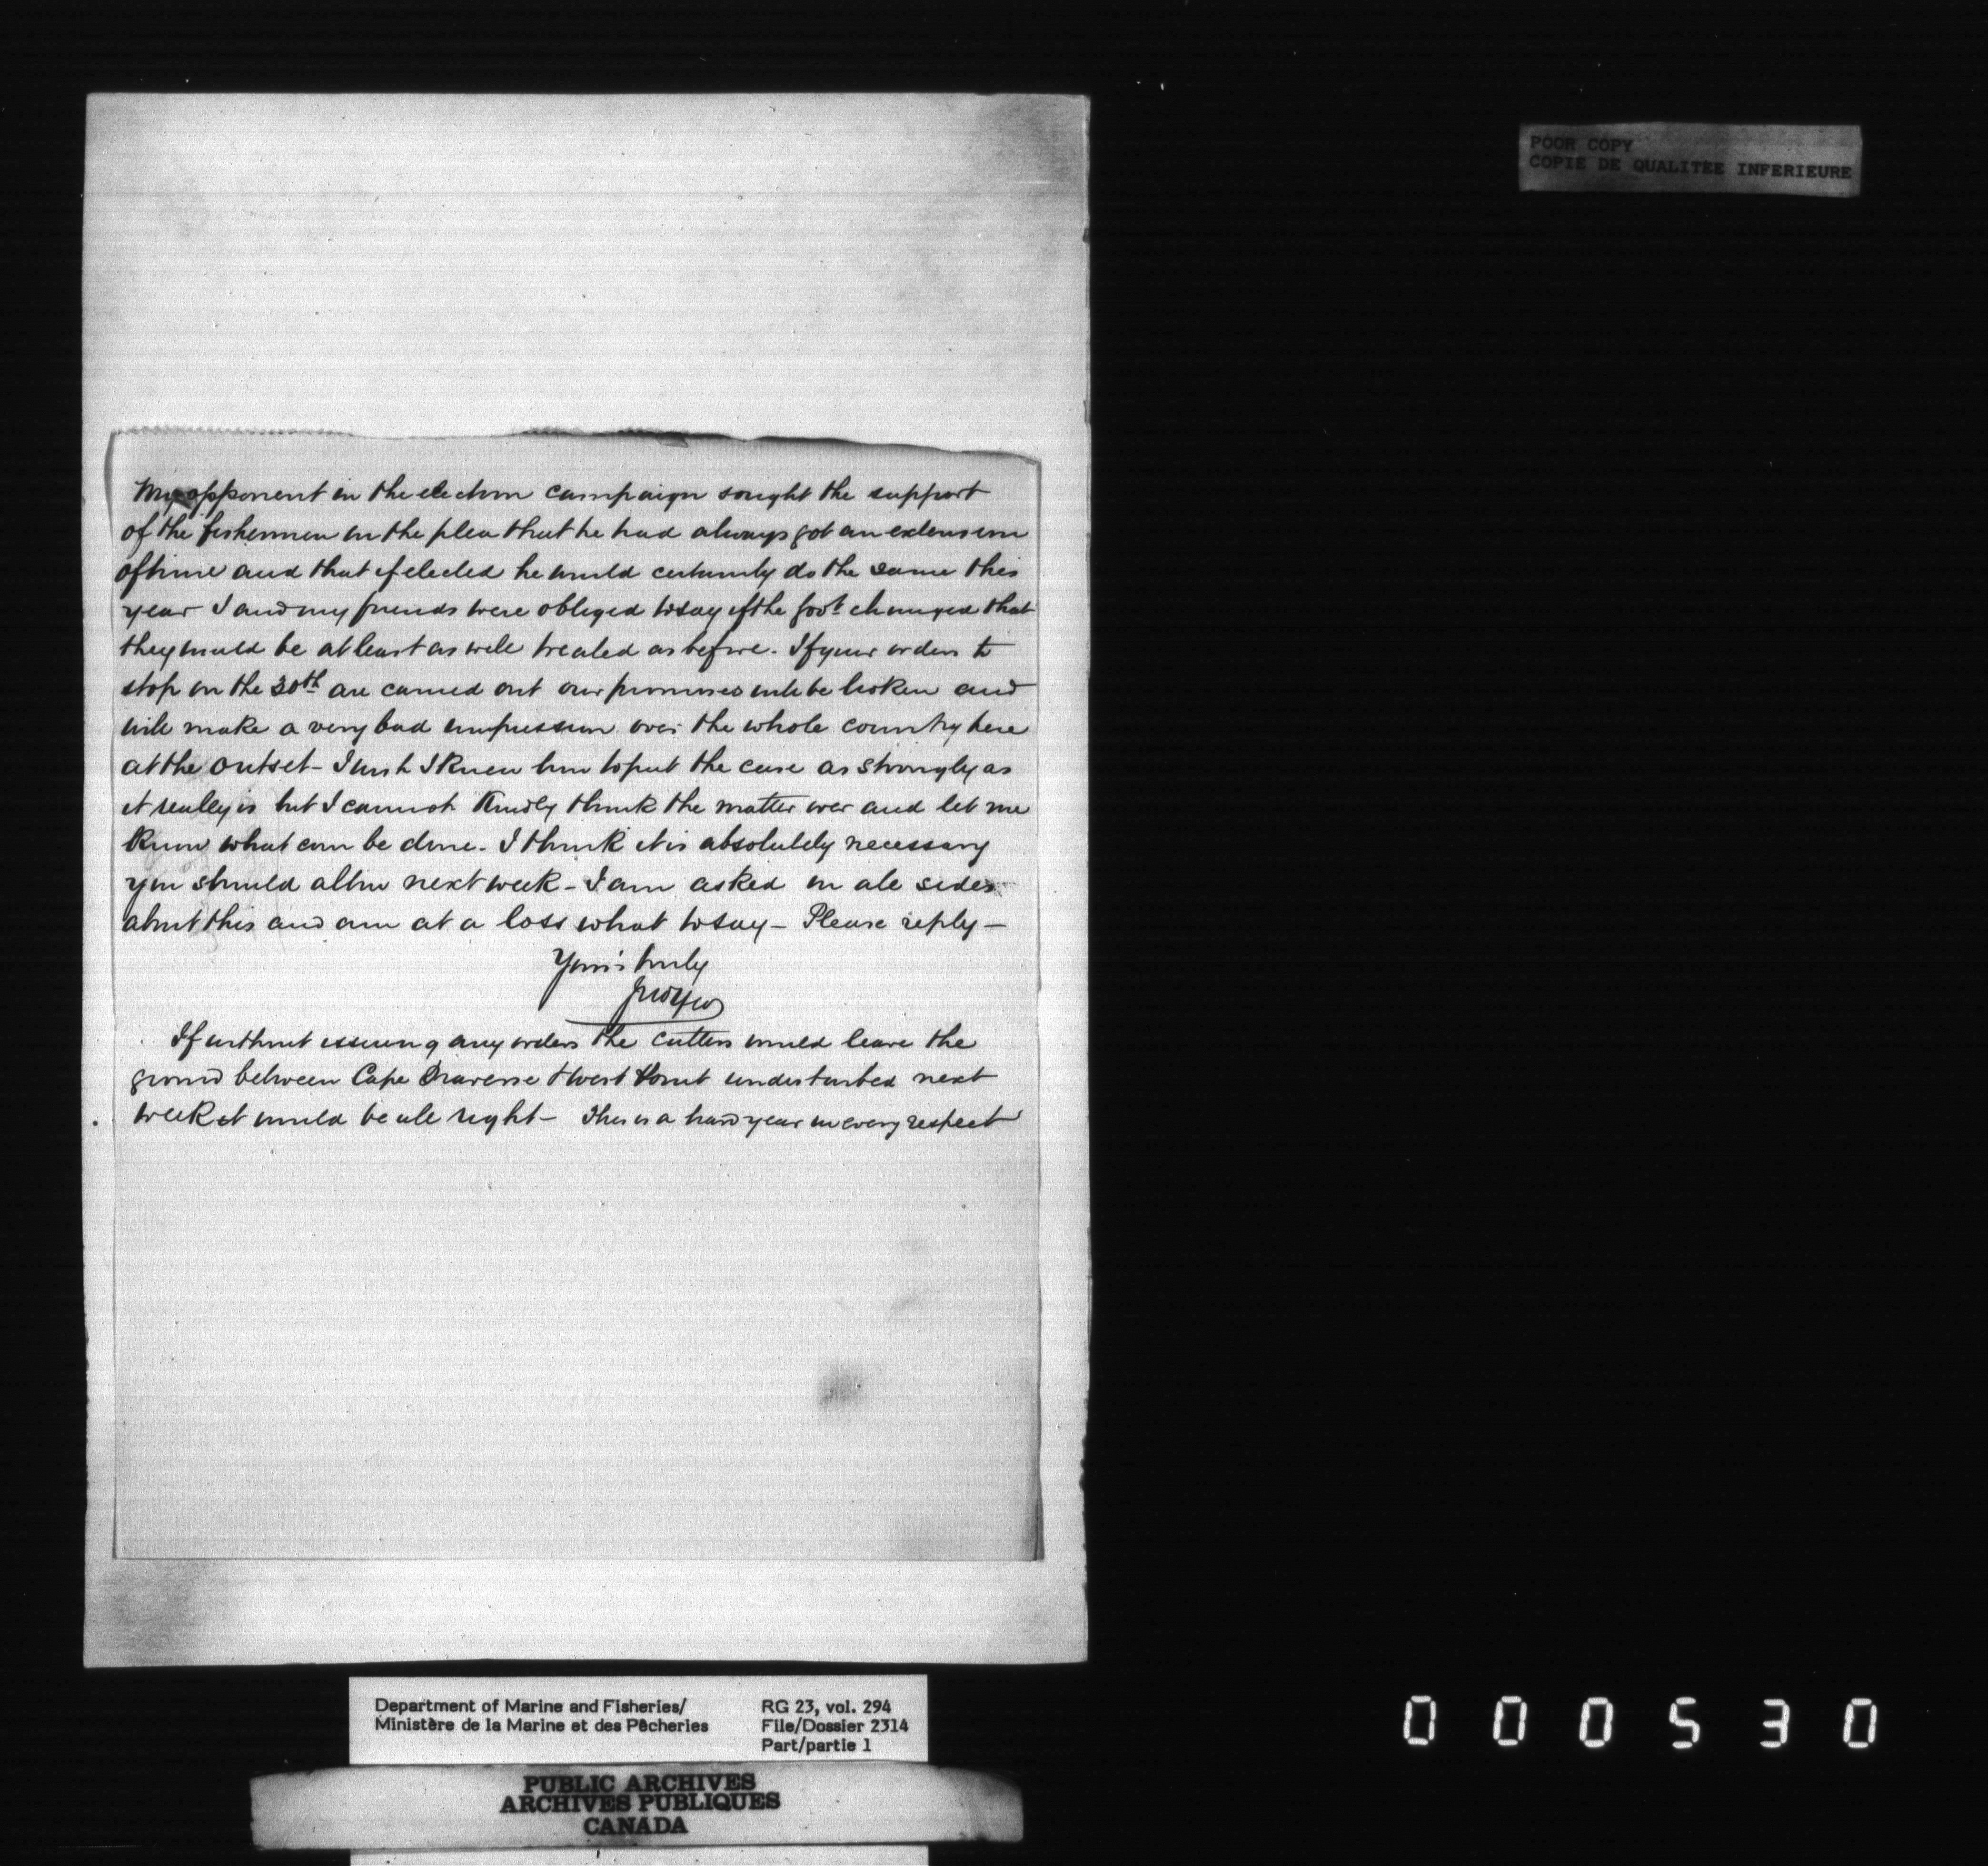 POOR COPY
COPIE DE QUALITEE INFERIEURE
My opponent in the election campaign sought the support
of the fishermen on the plea that he had always got an extension
of time and that if elected he would certainly do the same this
year I and my friends were obliged to say if the Govt changed that
they would be at least as well treated as before. If your orders to
stop on the 30th are carried out our promises will be broken and
will make a very bad impression over the whole country here
at the outset - I wish I knew how to put the case as strongly as
it really is but I cannot Kindly think the matter over and let me
know what can be done. I think it is absolutely necessary
you should allow next week - I am asked on all sides
about this and am at a loss what to say - Please reply -
Yours truly
If without issuing any orders the cutters would leave the
ground between Cape Traverse & West Point undisturbed next
week it would be all right - This is a hard year in every respect
Department of Marine and Fisheries/
Ministère de la Marine et des Pêcheries
RG 23, vol. 294
File/Dossier 2314
Part/partie 1
PUBLIC ARCHIVES
ARCHIVES PUBLIQUES
CANADA
000530